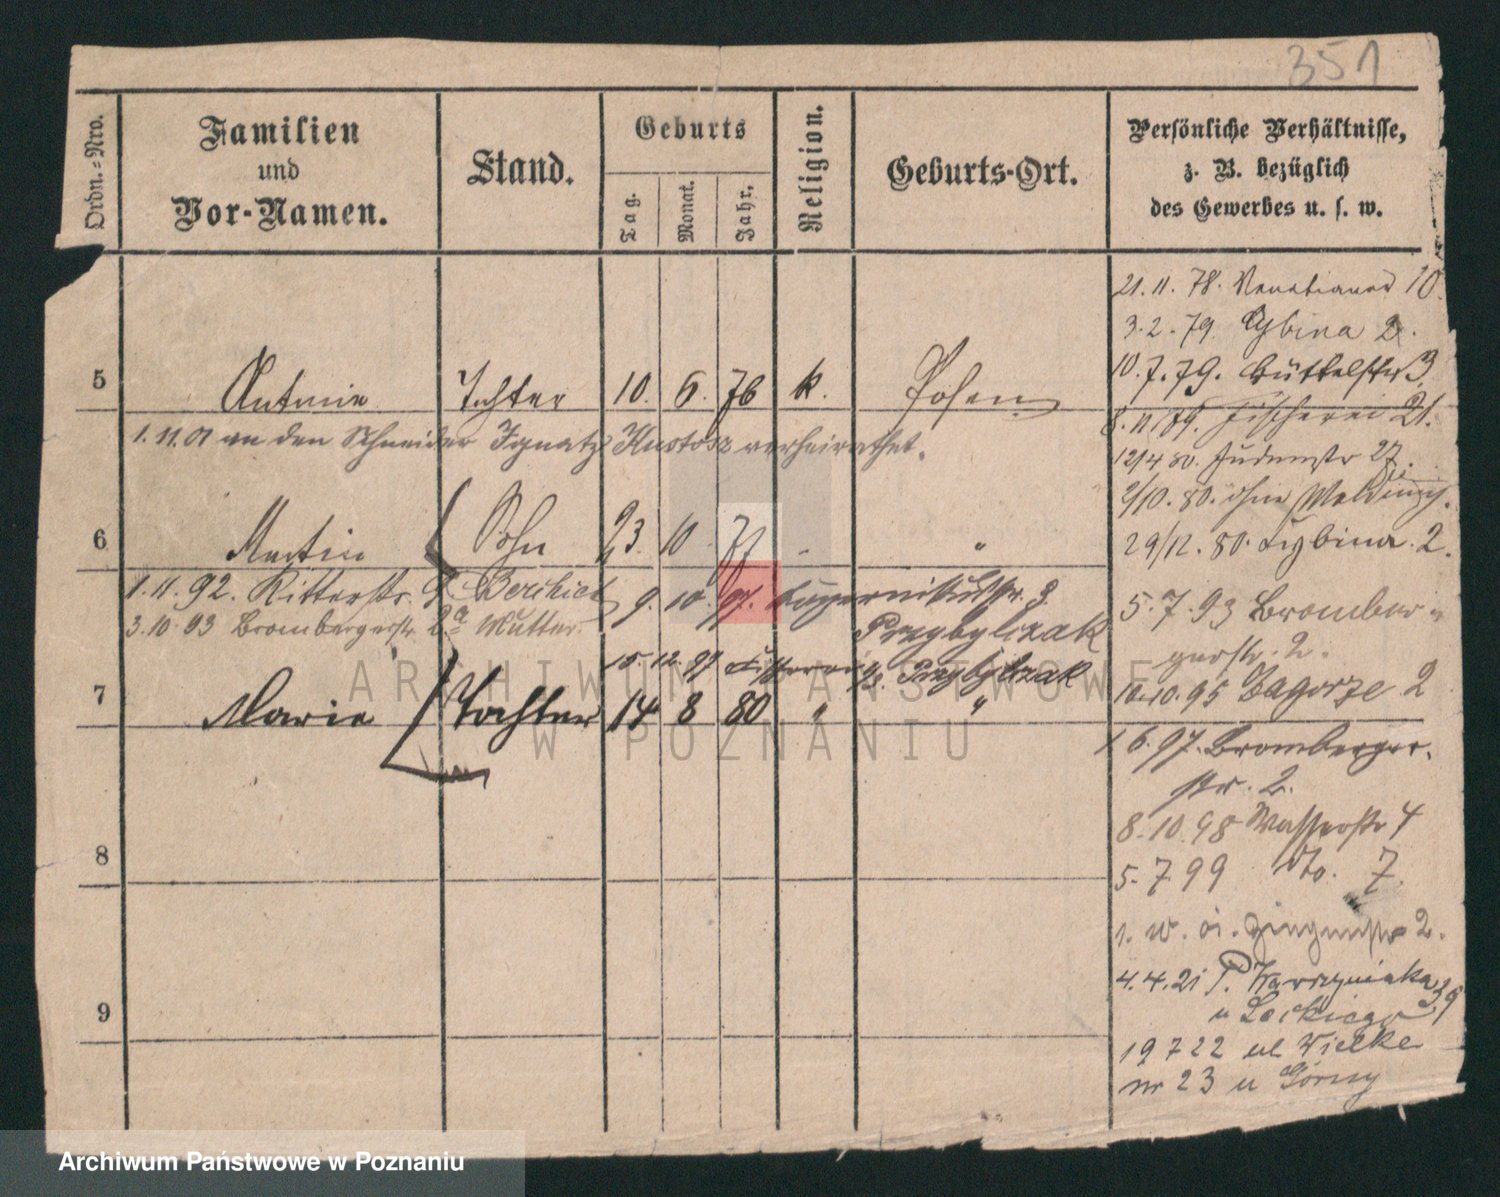 351
Ordn.=Nro.
Familien
und
Vor-Namen.
Stand.
Geburts
Tag.
Monat.
Jahr.
Religion.
Geburts-Ort.
Persönliche Verhältnisse,
z. B. bezüglich
des Gewerbes u. s. w.
21. 11. 78. Venetianer 10.
3. 2. 79. Cybina 2.
10. 7. 79. Büttelstr 3.
5 Antonie Tochter 10. 6. 76 k. Posen
8. 11. 79. Fischerei 21.
1. 11. 01 an den Schneider Ignatz Kustosz verheirathet.
12/4 80. Judenstr 27.
2/10. 80. ohne Meldung.
6 Martin Sohn 23. 10. 77 - "
29/12. 80. Cybina. 2.
1. 11. 92. Ritterstr. 9. 9. 10. 97. 3.
3. 10. 93 Brombergerstr. 2a Mutter. Przybylczak
5. 7. 93 Bromber-
gerstr. 2.
15. 12. 99 Przybylczak
10. 10. 95 Zagorze 2
7 Marie Tochter 14 8 80 " "
1. 6. 97. Bromberger-
str. 2.
8. 10. 98 Wasserstr 4
8
5. 7 99 do. 7.
2.
4. 4. 21 39
9
19 7 22 ul Wielke
nr 23 u Górny
ARCHIWUM PAŃSTWOWE
W POZNANIU
Archiwum Państwowe w Poznaniu